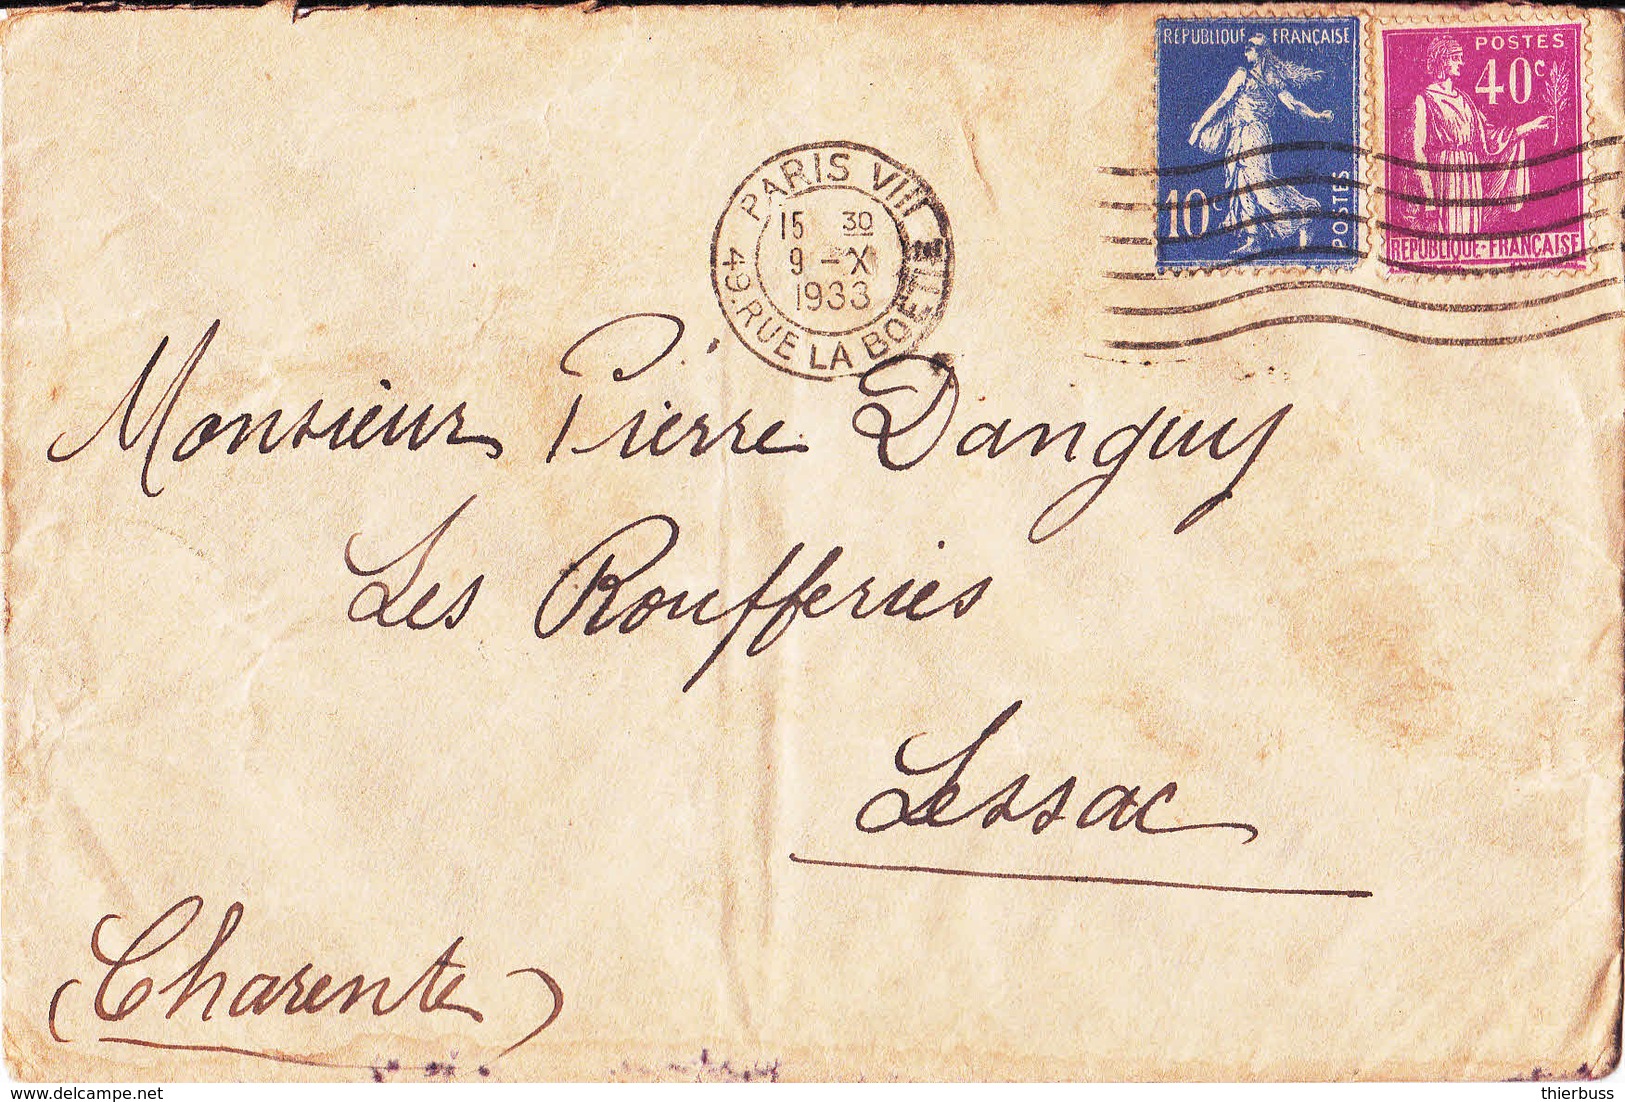 RÉPUBLIQUE FRANÇAISE
10c
POSTES
POSTES
40c
RÉPUBLIQUE-FRANÇAISE
PARIS VIII
15 30
9 - X
1933
49. RUE LA BOËTIE
Monsieur Pierre Danguy
Les Roufferies
Lessac
(Charente)
delcampe.net
thierbuss